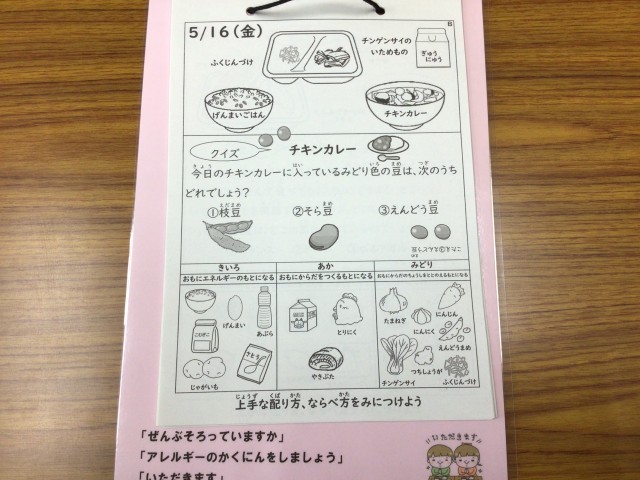 5/16(金)
B
ふくじんづけ
チンゲンサイの
いためもの
ぎゅう
にゅう
げんまいごはん
チキンカレー
クイズ
チキンカレー
今日のチキンカレーに入っているみどり色の豆は、次のうち
どれでしょう?
①枝豆
②そら豆
③えんどう豆
きいろ
あか
みどり
おもにエネルギーのもとになる
おもにからだをつくるもとになる
おもにからだのちょうしをととのえるもとになる
げんまい
あぶら
こむぎこ
じゃがいも
さとう
とりにく
やきぶた
たまねぎ
にんにく
にんじん
えんどうまめ
チンゲンサイ
つちしょうが
ふくじんづけ
上手な配り方、ならべ方をみにつけよう
「ぜんぶそろっていますか」
「アレルギーのかくにんをしましょう」
「いただきます」
いただきます